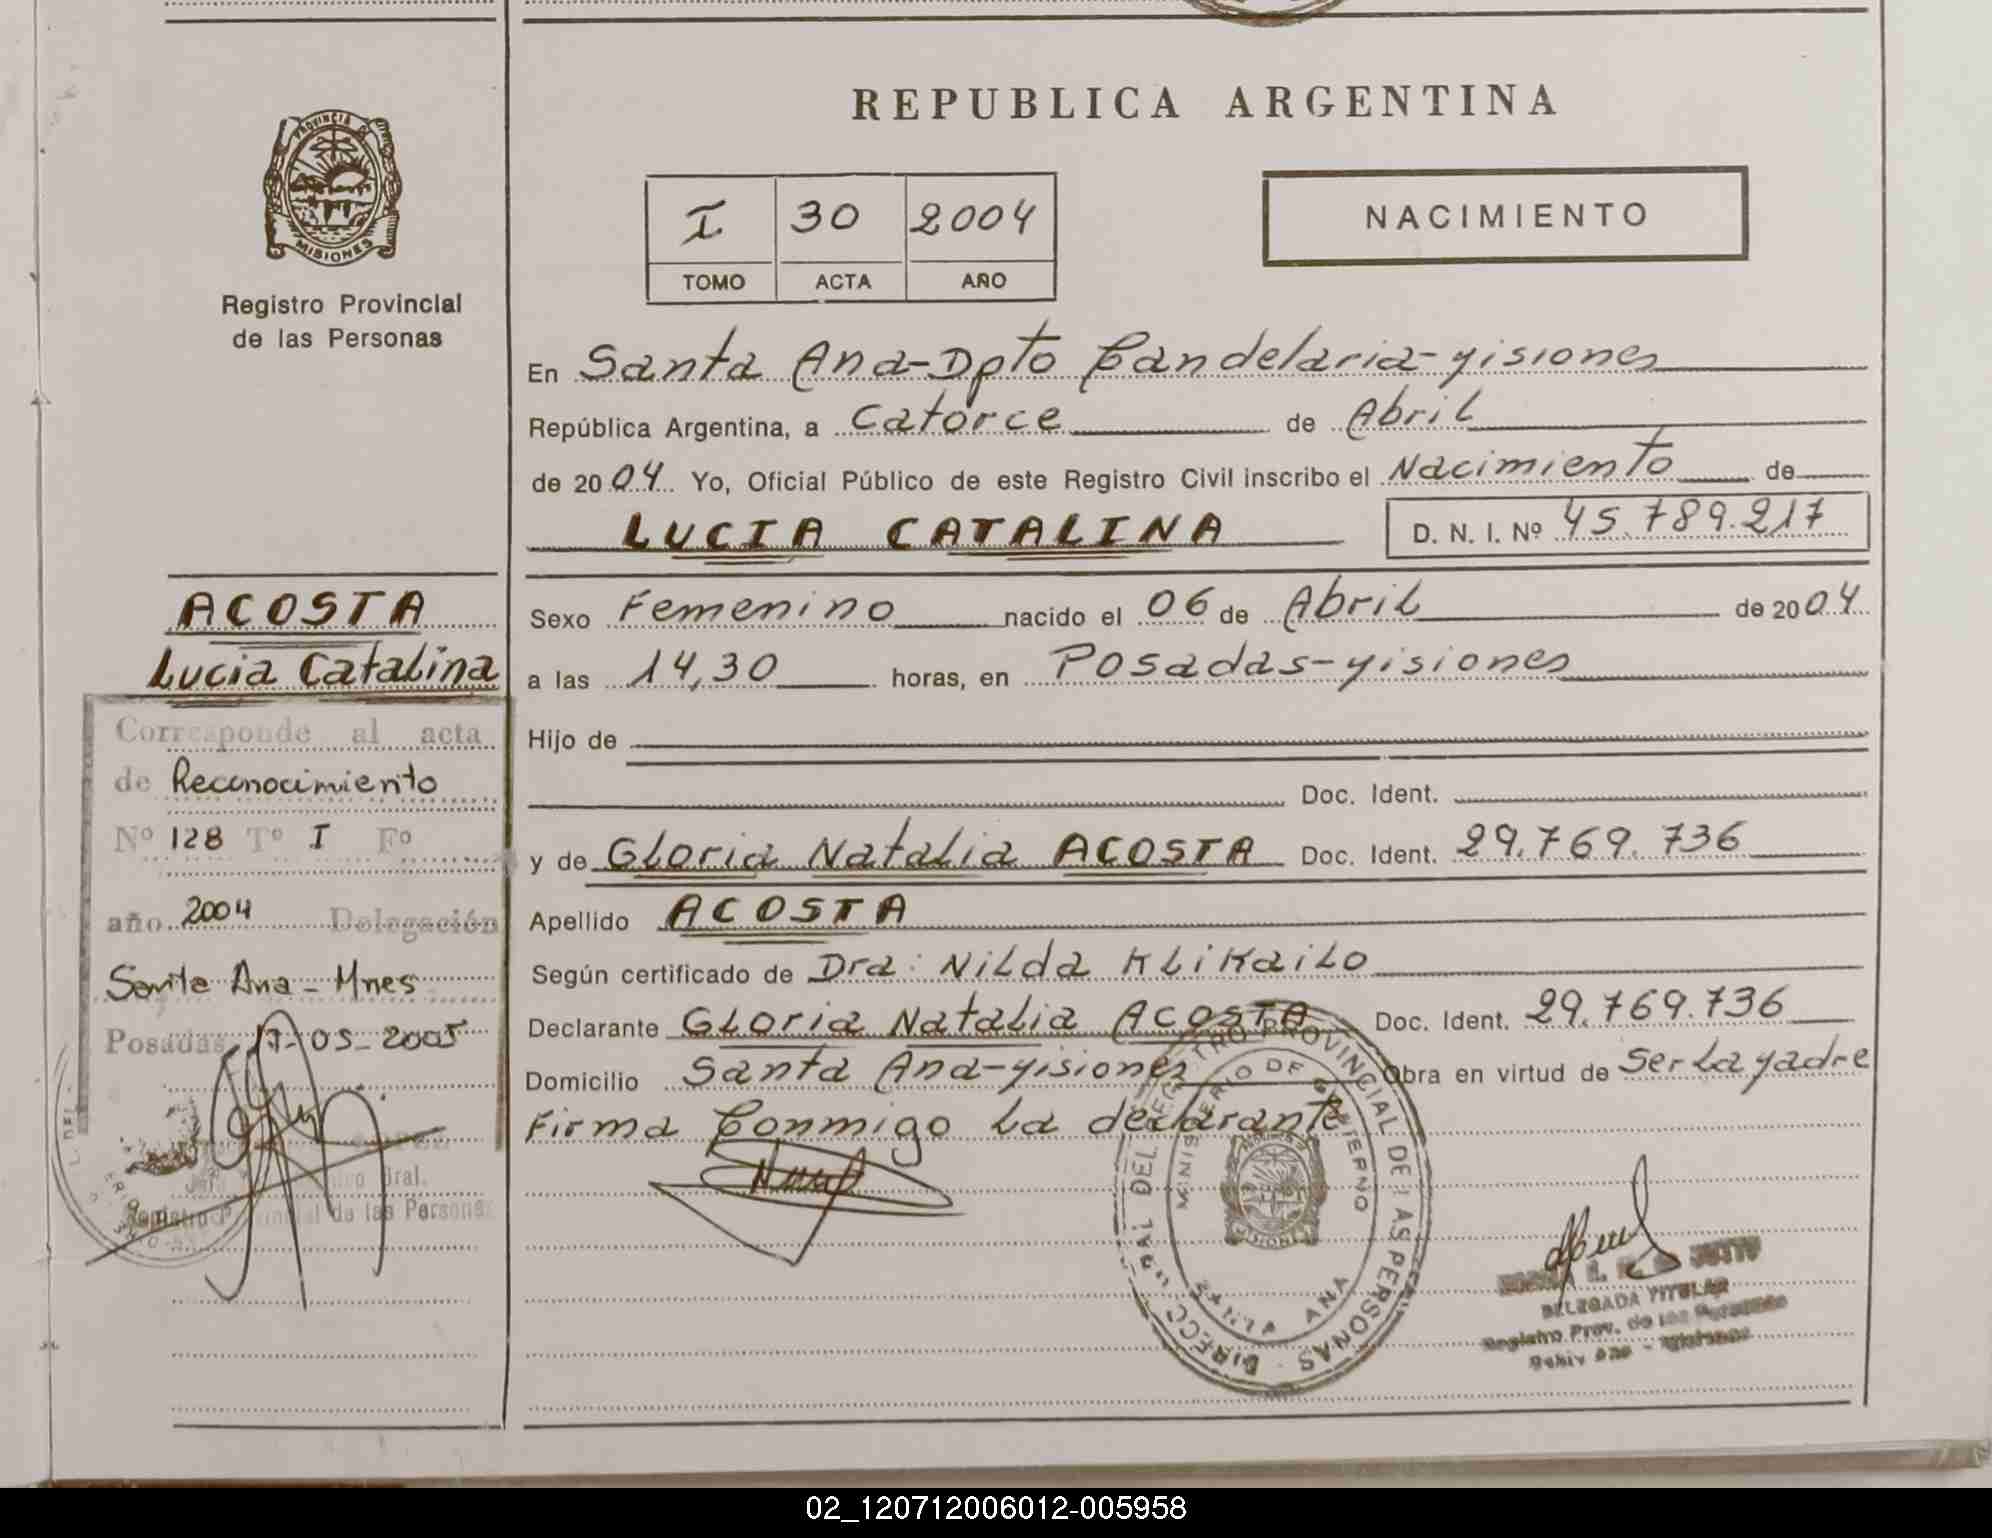 REPUBLICA ARGENTINA
PROVINCIA DE
MISIONES
Registro Provincial
de las Personas
I 30 2004
TOMO ACTA AÑO
NACIMIENTO
En Santa Ana-Dpto Candelaria-Misiones
República Argentina, a Catorce de Abril
de 2004 Yo, Oficial Público de este Registro Civil inscribo el Nacimiento de
LUCIA CATALINA D. N. I. Nº 45.789.217
ACOSTA
Lucia Catalina
Sexo Femenino nacido el 06 de Abril de 2004
a las 14,30 horas, en Posadas-Misiones
Hijo de
Doc. Ident.
y de Gloria Natalia ACOSTA Doc. Ident. 29.769.736
Apellido ACOSTA
Según certificado de Dra: Nilda Klikailo
Declarante Gloria Natalia ACOSTA Doc. Ident. 29.769.736
Domicilio Santa Ana-Misiones Obra en virtud de Ser La Madre
Firma Conmigo La declarante
Corresponde al acta
de Reconocimiento
Nº 128 Tº I Fº
año 2004 Delegación
Santa Ana - Mnes
Posadas, 17-05-2005
Gral.
Registro Provincial de las Personas
REGISTRO PROVINCIAL DE LAS PERSONAS
MINISTERIO DE GOBIERNO
MISIONES
SANTA ANA
DELEGADA TITULAR
Registro Prov. de las Personas
02_120712006012-005958